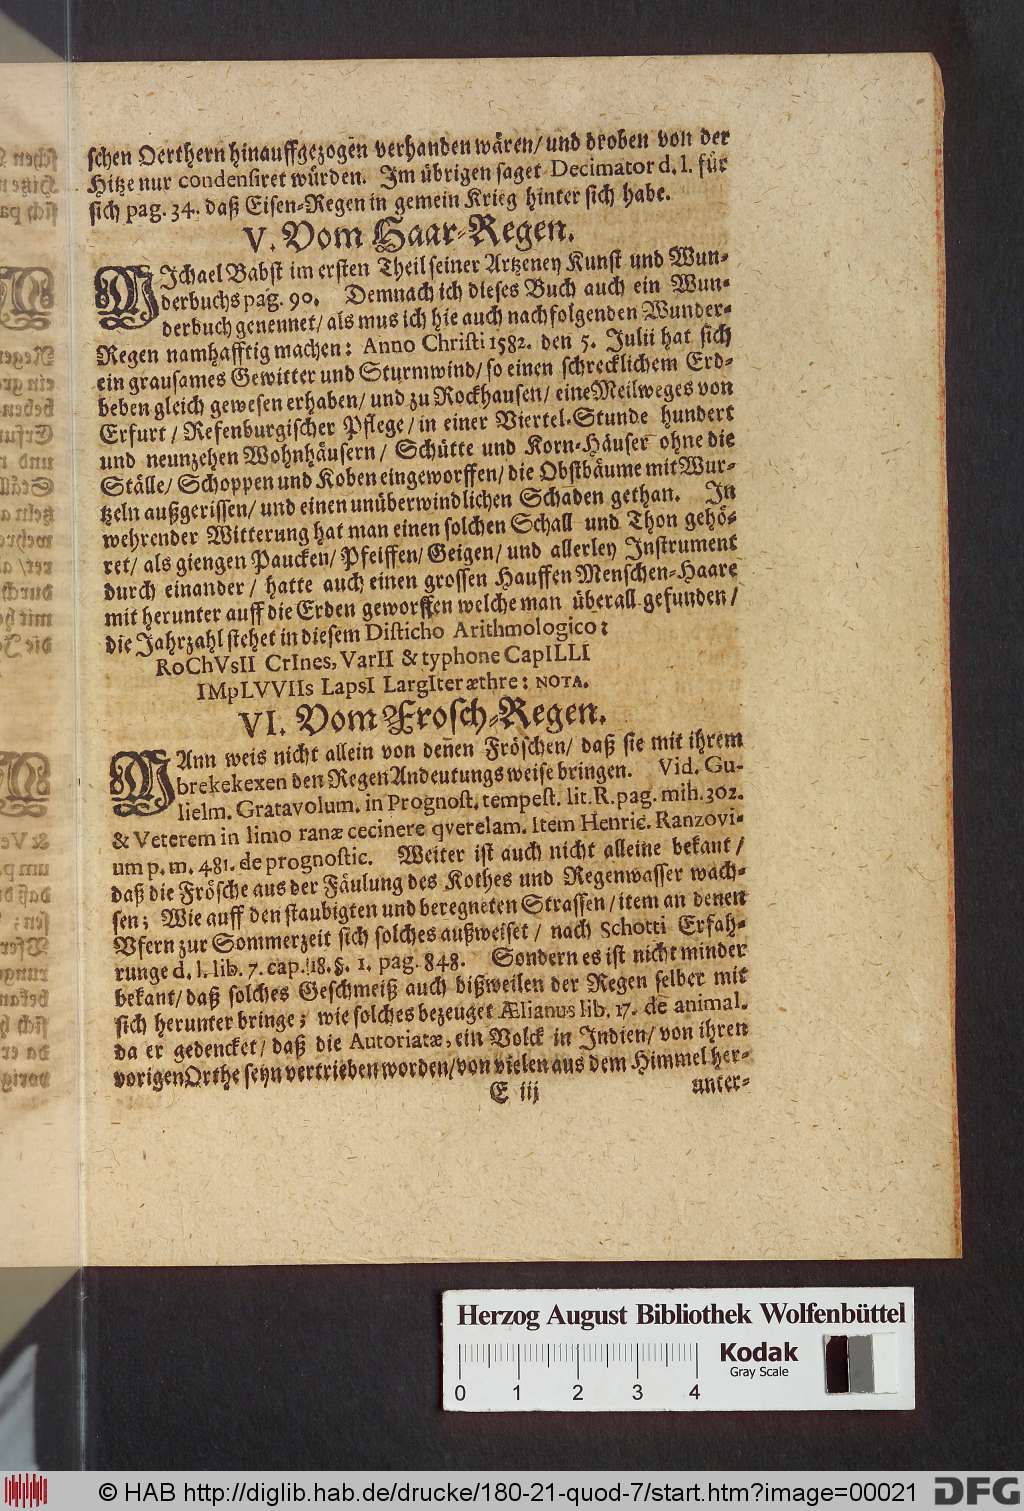 schen Oerthern hinauffgezogen verhanden wären/ und droben von der
Hitze nur condensiret würden. Im übrigen saget Decimator d. l. für
sich pag. 34. daß Eisen-Regen in gemein Krieg hinter sich habe.
V. Vom Haar-Regen.
MIchael Babst im ersten Theil seiner Artzeney Kunst und Wun-
derbuchs pag. 90. Demnach ich dieses Buch auch ein Wun-
derbuch genennet/ als mus ich hie auch nachfolgenden Wunder-
Regen namhafftig machen: Anno Christi 1582. den 5. Julii hat sich
ein grausames Gewitter und Sturmwind/ so einen schrecklichem Erd-
beben gleich gewesen erhaben/ und zu Rockhausen/ eine Meilweges von
Erfurt/ Refenburgischer Pflege/ in einer Viertel-Stunde hundert
und neunzehen Wohnhäusern/ Schütte und Korn-Häuser ohne die
Ställe/ Schoppen und Koben eingeworffen/ die Obstbäume mit Wur-
tzeln außgerissen/ und einen unüberwindlichen Schaden gethan. In
wehrender Witterung hat man einen solchen Schall und Thon gehö-
ret/ als giengen Paucken/ Pfeiffen/ Geigen/ und allerley Instrument
durch einander/ hatte auch einen grossen Hauffen Menschen-Haare
mit herunter auff die Erden geworffen welche man überall gefunden/
die Jahrzahl stehet in diesem Disticho Arithmologico:
RoChVsII CrInes, VarII & typhone CapILLI
IMpLVVIIs LapsI LargIter æthre: NOTA.
VI. Vom Frosch-Regen.
MAnn weis nicht allein von deñen Fröschen/ daß sie mit ihrem
brekekexen den Regen Andeutungsweise bringen. Vid. Gu-
lielm. Gratavolum. in Prognost. tempest. lit. R. pag. mih. 302.
& Veterem in limo ranæ cecinere qverelam. Item Henric. Ranzovi-
um p. m. 481. de prognostic. Weiter ist auch nicht alleine bekant/
daß die Frösche aus der Fäulung des Kothes und Regenwasser wach-
sen; Wie auff den staubigten und beregneten Strassen/ item an denen
Vfern zur Sommerzeit sich solches außweiset/ nach Schotti Erfah-
runge d. l. lib. 7. cap. 18. §. 1. pag. 848. Sondern es ist nicht minder
bekant/ daß solches Geschmeiß auch bißweilen der Regen selber mit
sich herunter bringe; wie solches bezeuget Ælianus lib. 17. de animal.
da er gedencket/ daß die Autoriatæ, ein Volck in Indien/ von ihren
vorigen Orthe seyn vertrieben worden/ von vielen aus dem Himmel her-
E iij unter-
Herzog August Bibliothek Wolfenbüttel
Kodak
Gray Scale
0 1 2 3 4
© HAB http://diglib.hab.de/drucke/180-21-quod-7/start.htm?image=00021 DFG